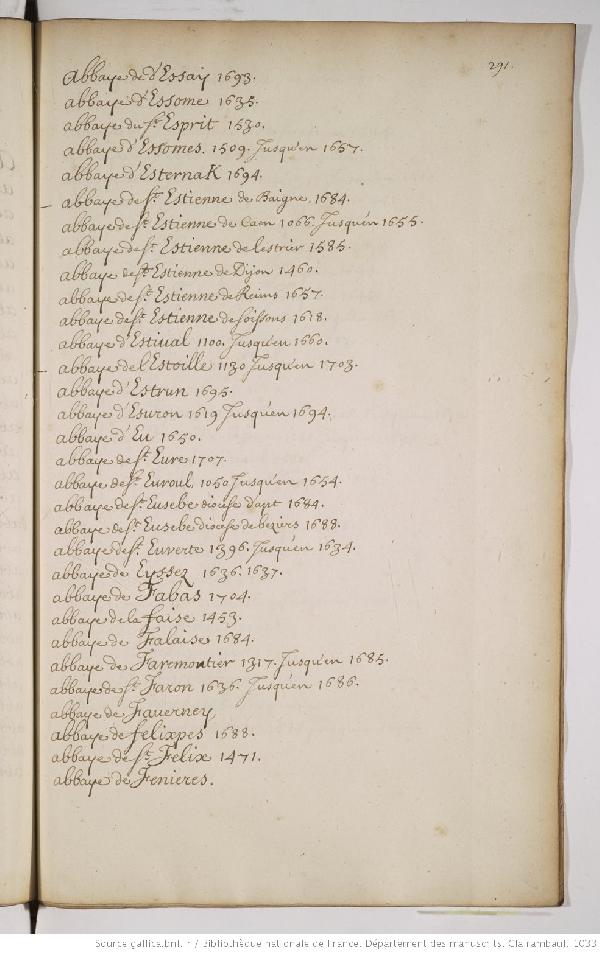 291.
Abbaye de d'Essay 1693.
abbaye d'Essome 1635.
abbaye du St. Esprit 1530.
abbaye d'Essomes. 1509. Jusqu'en 1657.
abbaye d'Esternak 1694.
abbaye de St. Estienne de Baigne. 1684.
abbaye de St. Estienne de Caen 1066. Jusqu'en 1655.
abbaye de St. Estienne de lestrier 1585.
abbaye de St. Estienne de Dijon 1460.
abbaye de St. Estienne de Reims 1657.
abbaye de St. Estienne de soissons 1618.
abbaye d'Estival 1100. Jusqu'en 1660.
abbaye de l'Estoille 1130 Jusqu'en 1703.
abbaye d'Estrun 1695.
abbaye d'Esuron 1619 Jusqu'en 1694.
abbaye d'Eu 1650.
abbaye de St. Eure 1707.
abbaye de St. Euroul, 1050 Jusqu'en 1654.
abbaye de St. Eusebe diocese d'apt 1684.
abbaye de St. Eusebe diocese de beziers 1688.
abbaye de St. Euverte 1396. Jusqu'en 1634.
abbaye de Eyssez 1636. 1637.
abbaye de Fabas 1704.
abbaye de la faise 1453.
abbaye de Falaise 1684.
abbaye de Faremontier 1317. Jusqu'en 1685.
abbaye de St. Faron 1636. Jusqu'en 1686.
abbaye de Fauerney
abbaye de felixpes 1688.
abbaye de St. Felix 1471.
abbaye de Fenieres.
Source gallica.bnf.fr / Bibliothèque nationale de France. Département des manuscrits. Clairambault 1033